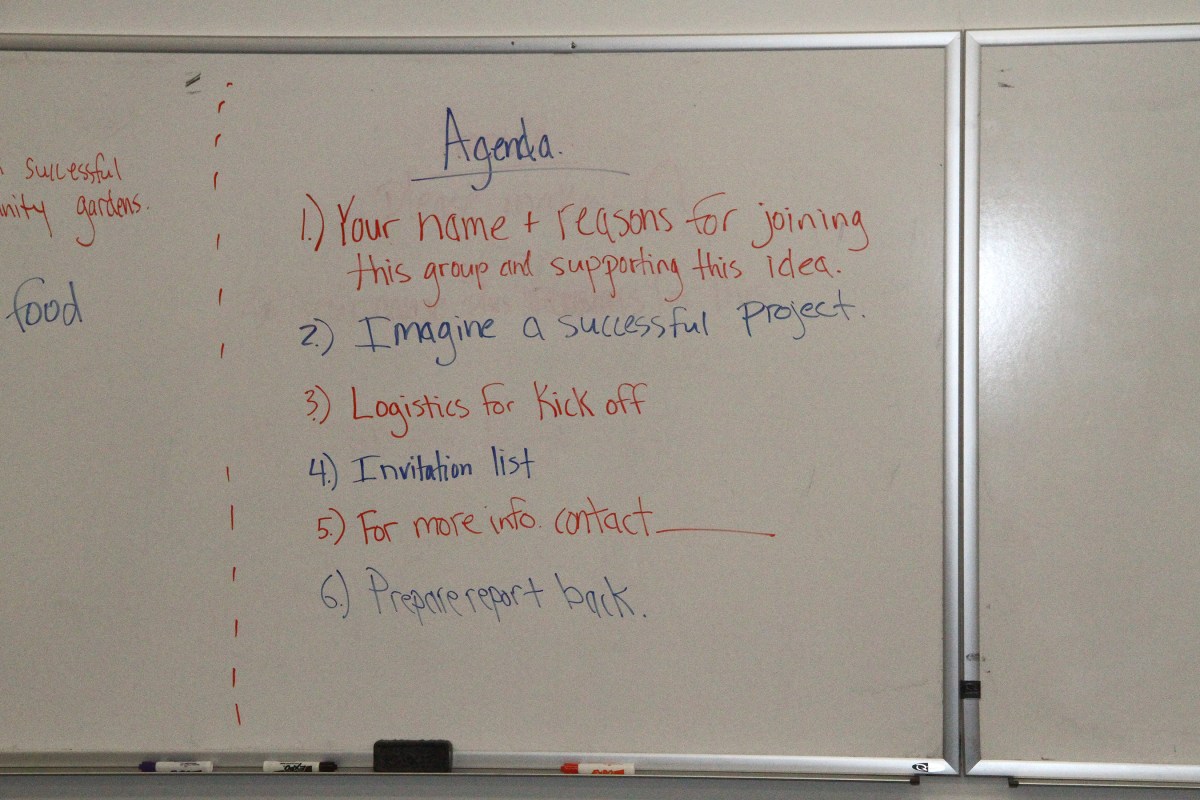 successful
nity gardens.
food
Agenda.
1.) Your name + reasons for joining
this group and supporting this idea.
2.) Imagine a successful project.
3.) Logistics for Kick off
4.) Invitation list
5.) For more info. contact________
6.) Prepare report back.